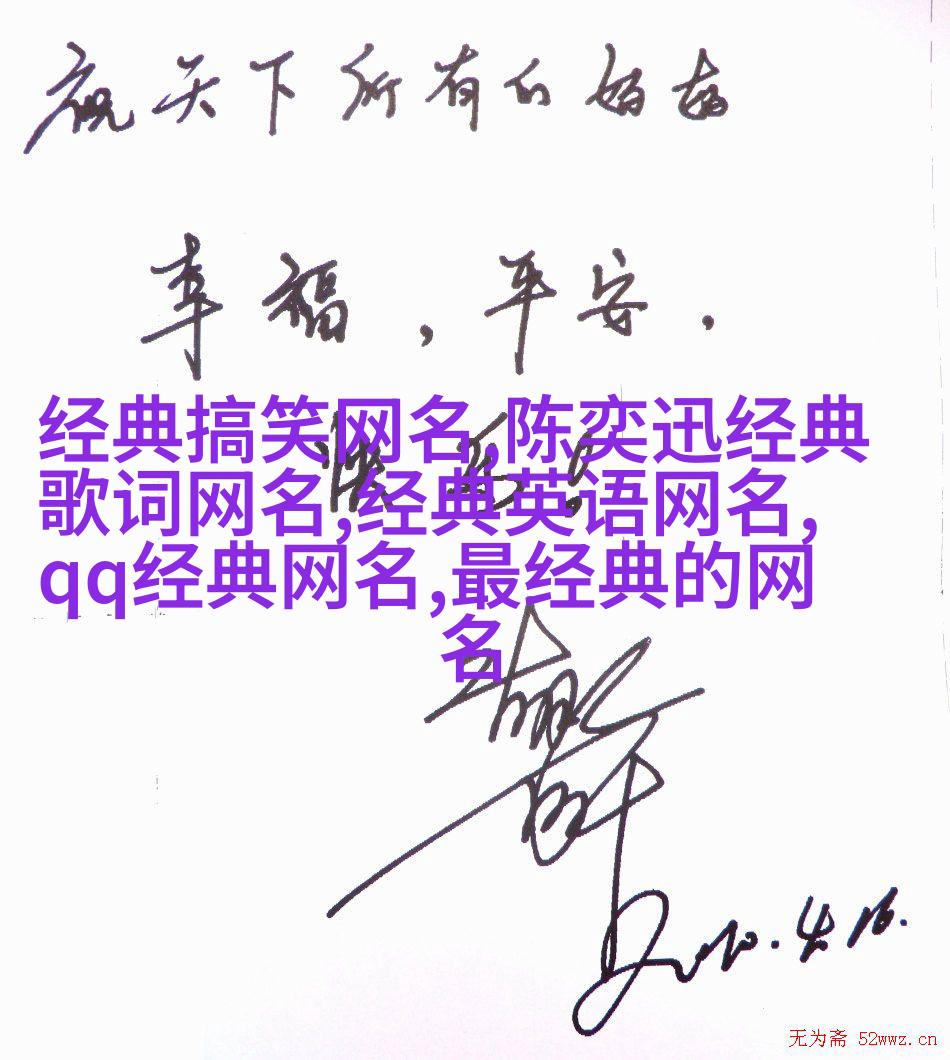 祝天下所有的妈妈
幸福，平安，
经典搞笑网名,陈奕迅经典
歌词网名,经典英语网名,
qq经典网名,最经典的网
名
2010.4.16.
无为斋 52wwz.cn